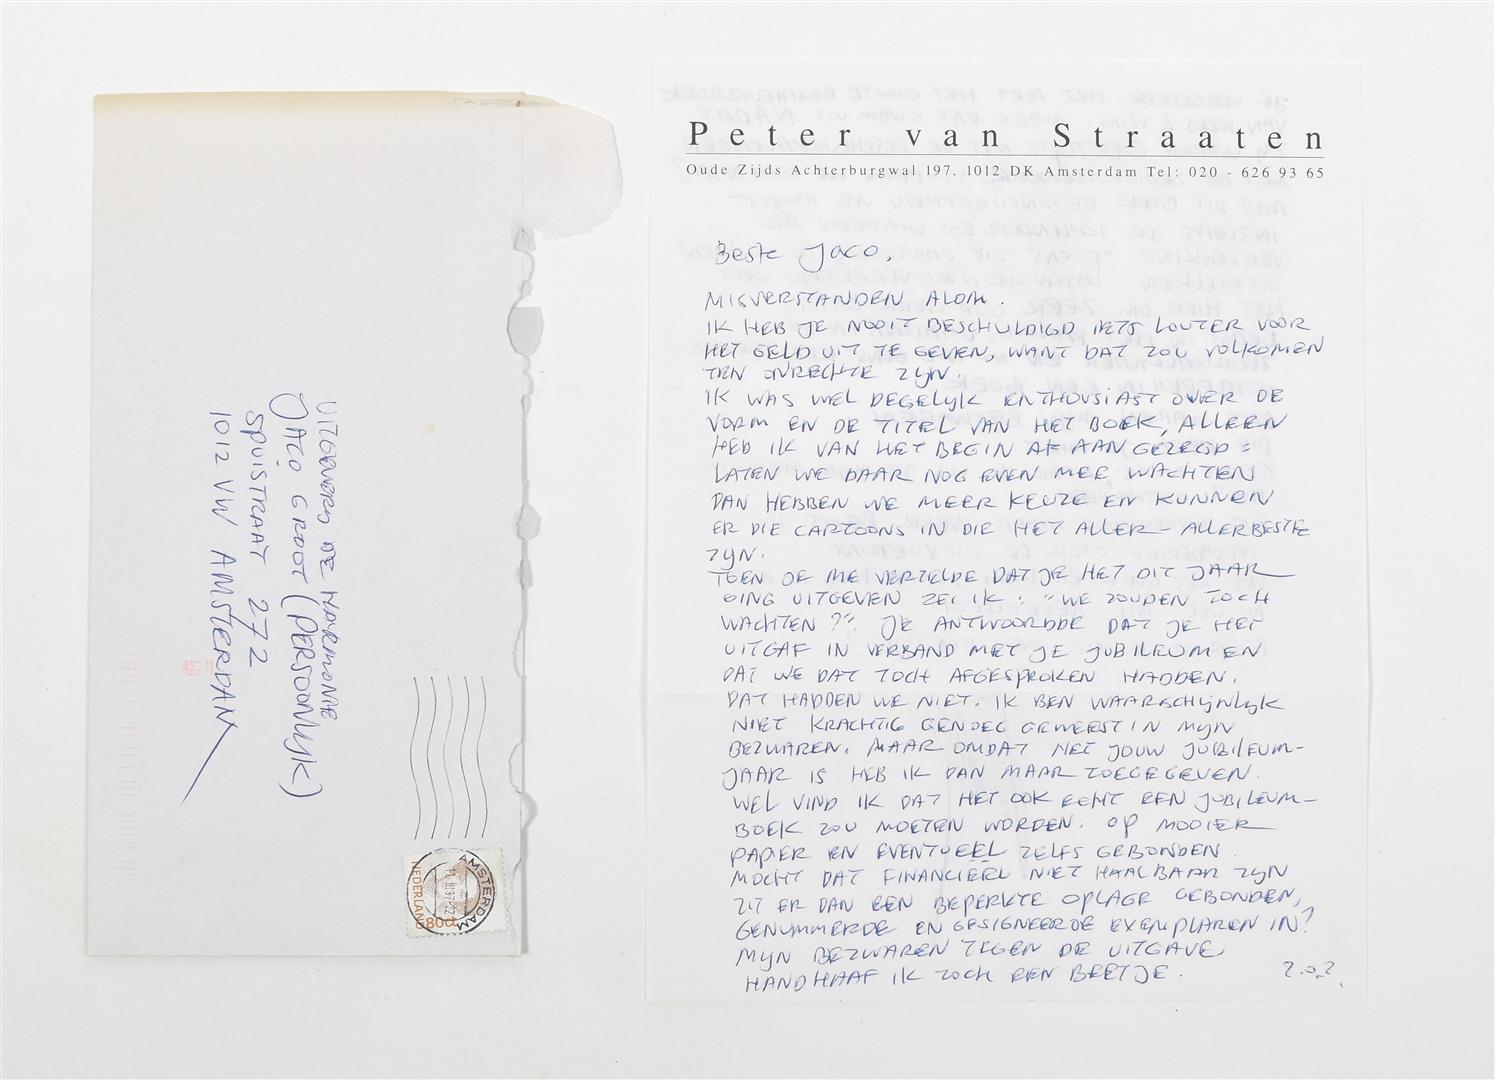 Peter van Straaten
Oude Zijds Achterburgwal 197, 1012 DK Amsterdam Tel: 020 - 626 93 65
Beste Jaco,
MISVERSTANDEN ALOM.
IK HEB JE NOOIT BESCHULDIGD IETS LOUTER VOOR
HET GELD UIT TE GEVEN, WANT DAT ZOU VOLKOMEN
TEN ONRECHTE ZIJN.
IK WAS WEL DEGELIJK ENTHOUSIAST OVER DE
VORM EN DE TITEL VAN HET BOEK, ALLEEN
HEB IK VAN HET BEGIN AF AAN GEZEGD:
LATEN WE DAAR NOG EVEN MEE WACHTEN
DAN HEBBEN WE MEER KEUZE EN KUNNEN
ER DIE CARTOONS IN DIE HET ALLER-ALLERBESTE
ZIJN.
TOEN JE ME VERTELDE DAT JE HET DIT JAAR
GING UITGEVEN ZEI IK: "WE ZOUDEN TOCH
WACHTEN?". JE ANTWOORDDE DAT JE HET
UITGAF IN VERBAND MET JE JUBILEUM EN
DAT WE DAT TOCH AFGESPROKEN HADDEN.
DAT HADDEN WE NIET. IK BEN WAARSCHIJNLIJK
NIET KRACHTIG GENOEG GEWEEST IN MIJN
BEZWAREN. MAAR OMDAT HET JOUW JUBILEUM-
JAAR IS HEB IK DAN MAAR TOEGEGEVEN.
WEL VIND IK DAT HET OOK ECHT EEN JUBILEUM-
BOEK ZOU MOETEN WORDEN. OP MOOIER
PAPIER EN EVENTUEEL ZELFS GEBONDEN.
MOCHT DAT FINANCIEEL NIET HAALBAAR ZIJN
ZIT ER DAN EEN BEPERKTE OPLAGE GEBONDEN,
GENUMMERDE EN GESIGNEERDE EXEMPLAREN IN?
MIJN BEZWAREN TEGEN DE UITGAVE
HANDHAAF IK TOCH EEN BEETJE.
Z.O.Z.
UITGEVERIJ DE HARMONIE
JACO GROOT (PERSOONLIJK)
SPUISTRAAT 272
1012 VW AMSTERDAM
AMSTERDAM
NEDERLAND
80ct